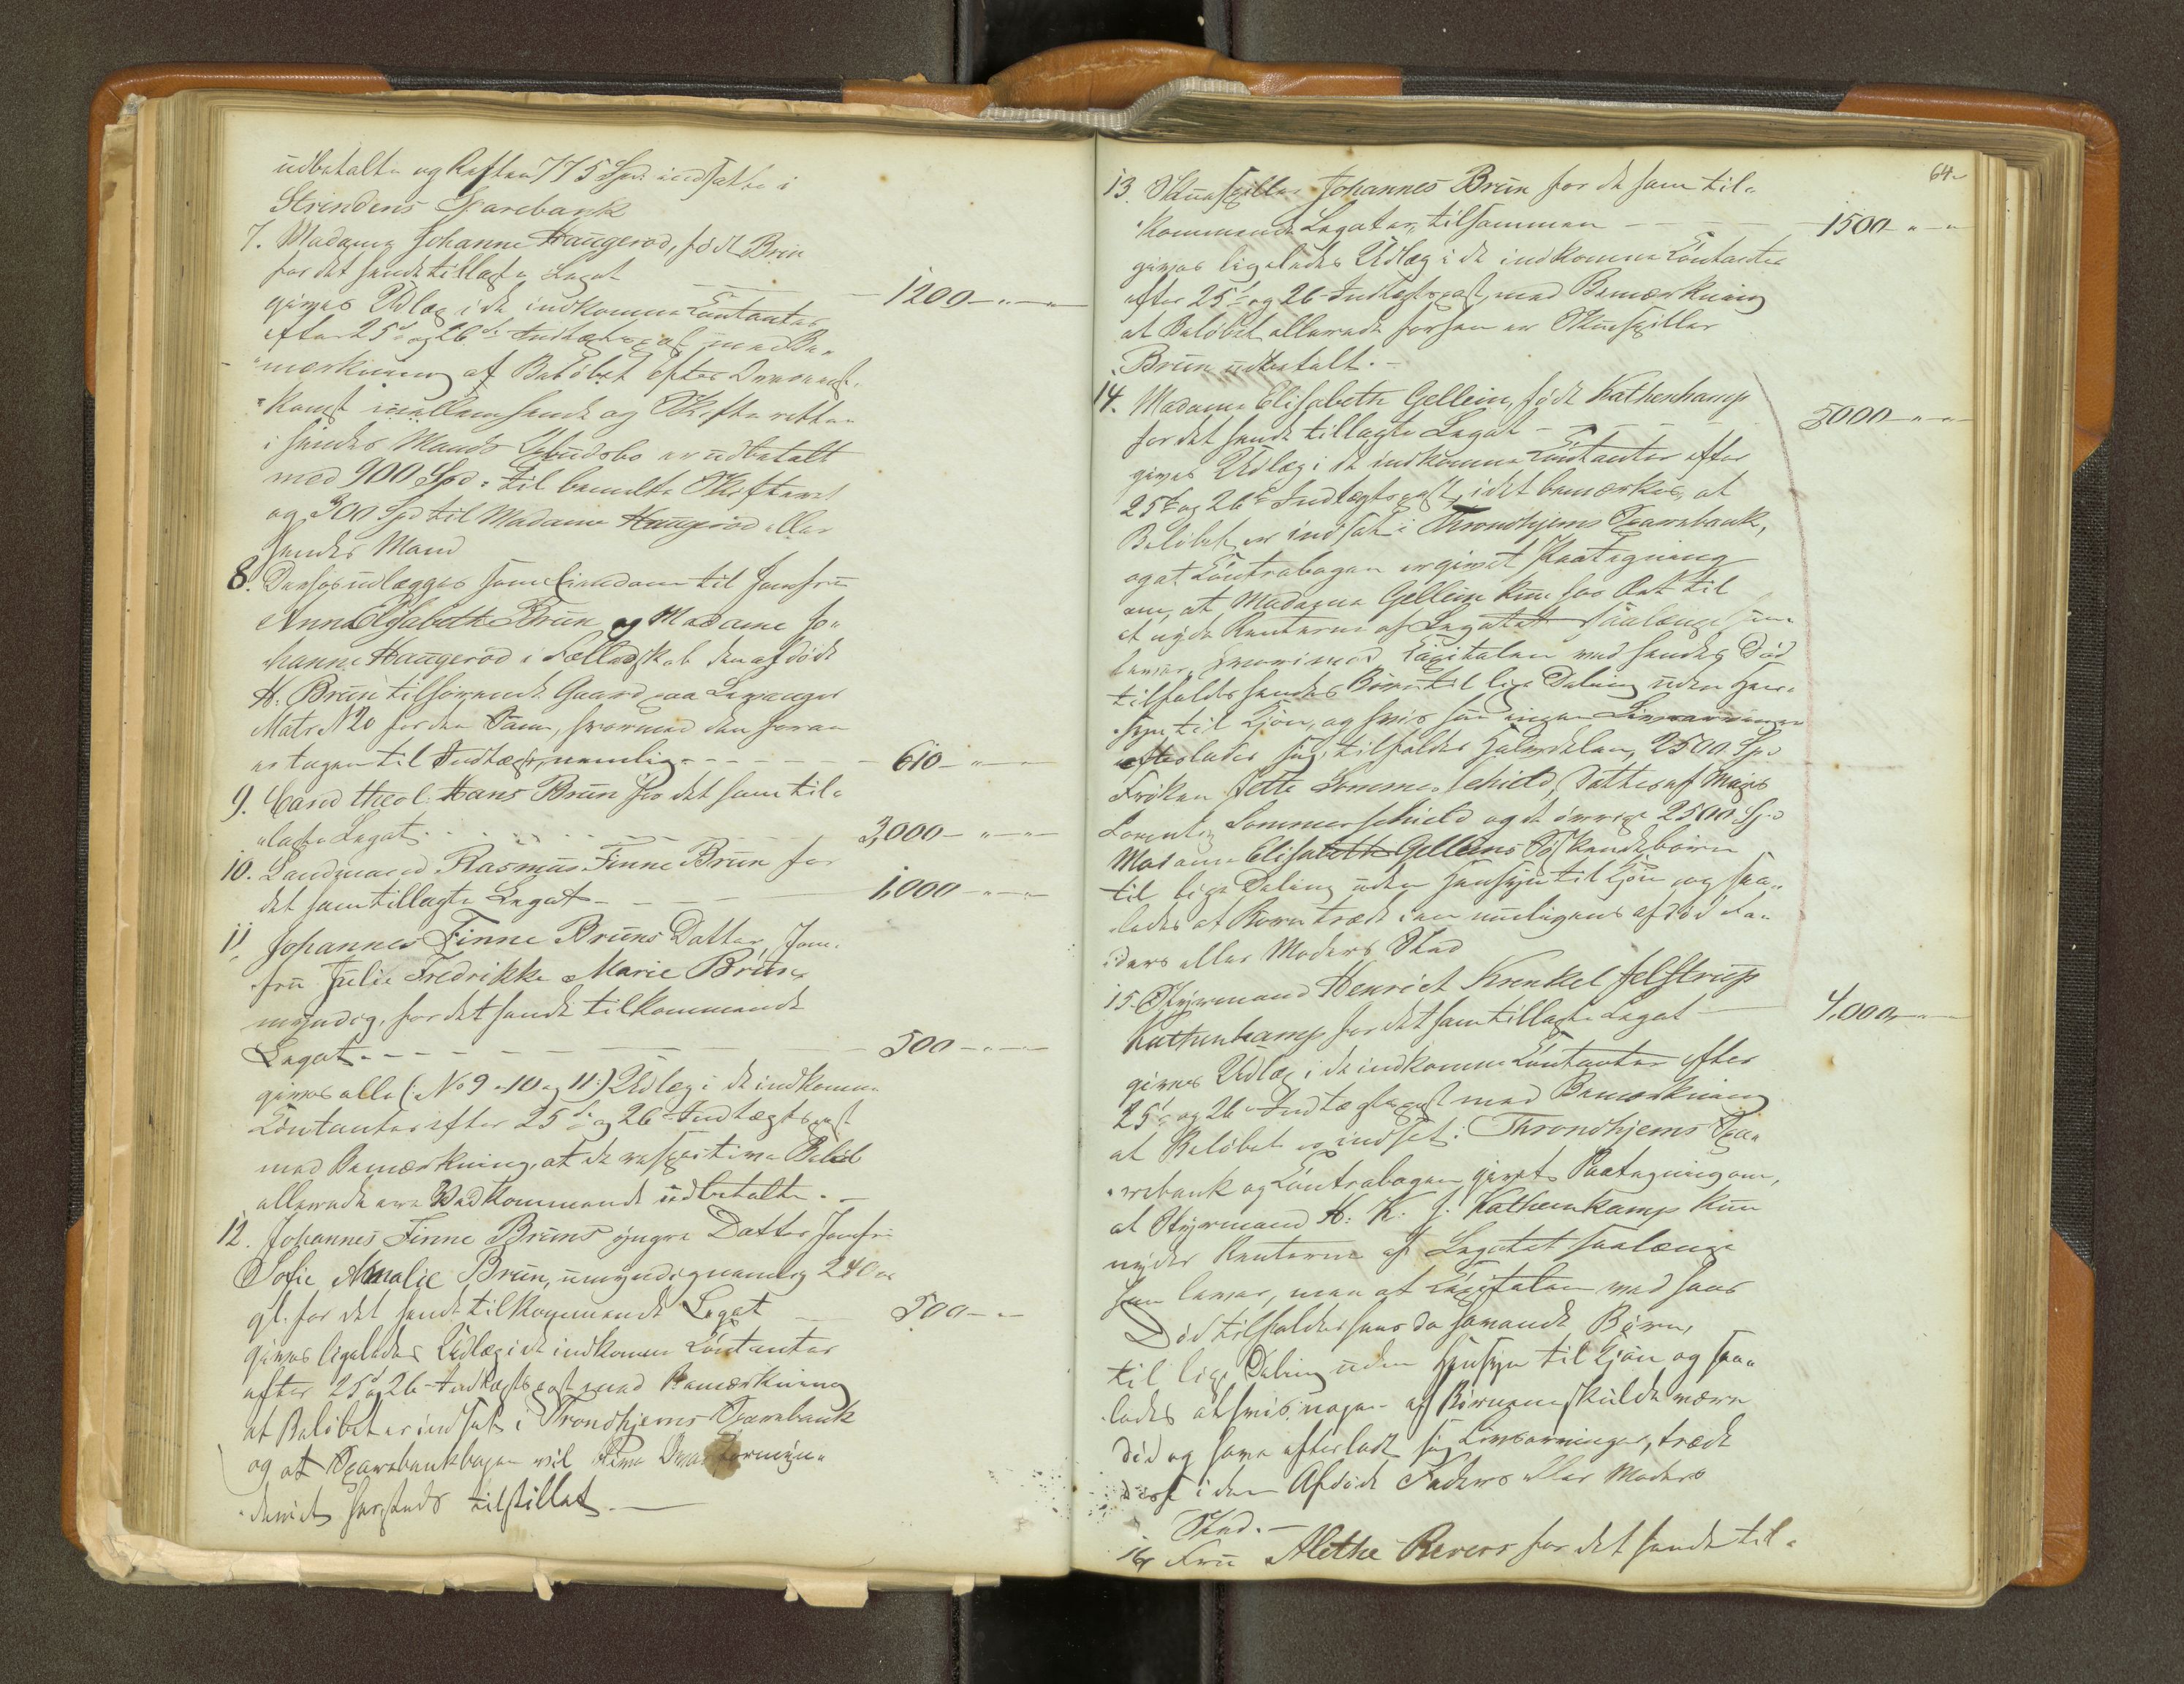 udbetalte og Resten 775 Spd indsatte i
Strindens Sparebank
7. Madame Johanne Haugerød, født Brun
for det hende tillagte Legat
1200
gives Udlæg i de indkomne Contanter
efter 25de og 26de Indtægtspost med Be„
„mærkning at Beløbet efter Overens„
„komst imellem hende og Skifteretten
i hendes Mands Opbudsbo er udbetalt
med 900 Spd: til bemeldte Skifteret
og 300 Spd til Madame Haugerød eller
hendes Mand
8. Derhos udlægges som Eiendom til Jomfru
Anna Elisabeth Brun og Madame Jo„
hanne Haugerød i Fælledskab den afdøde
H. Brun tilhørende Gaard paa Levanger
Matr N 20 for den Sum, hvormed den foran
er tagen til Indtægt, nemlig
610
9. Cand theol: Hans Brun for det ham til„
„lagte Legat
3,000
10. Landmand Rasmus Finne Brun for
det ham tillagte Legat
1,000
11. Johannes Finne Bruns Datter, Jom„
fru Julie Fredrikke Marie Brun,
myndig, for det hende tilkommende
Legat
500
gives alle (: No 9 - 10 og 11 :) Udlæg i de indkomne
Contanter efter 25de og 26 Indtægtspost
med Bemærkning, at de respective Beløb
allerede ere Vedkommende udbetalte. -
12. Johannes Finne Bruns yngre Datter Jomfru
Sofie Amalie Brun, umyndig nemlig
gl. for det hende tilkommende Legat
500
gives ligeledes Udlæg i de indkomne Contanter
efter 25de og 26 Indtægtspost med Bemærkning
at Beløbet er indsat i Trondhjems Sparebank
og at Sparebankbogen vil blive Overformyn„
„deriet hersteds tilstillet. -
64
13. Skuespiller Johannes Brun for de ham til„
„kommende Legater, tilsammen
1500
gives ligeledes Udlæg i de indkomne Contanter
efter 25de og 26 Indtægtspost med Bemærkning
at Beløbet allerede forhen er Skuespiller
Brun udbetalt. -
14. Madame Elisabeth Gellein, født Kathenkamp
for det hende tillagte Legat
5000
gives Udlæg i de indkomne Contanter efter
25de og 26de Indtægtspost, idet bemærkes, at
Beløbet er indsat i Throndhjems Sparebank,
og at Contrabogen er givet Paategning
om, at Madame Gellein kun har Ret til
at nyde Renterne af Legatet saalænge hun
lever, hvorimod Capitalen ved hendes Død
tilfalde hendes Børn til lige Deling uden Hen„
„syn til Kjøn, og hvis hun ingen Livsarvinger
efterlader sig, tilfalder Halvdelen, 2500 Spd
Frøken Jette Sommerschield, Datter af Major
Lorentz Sommerschield og de øvrige 2500 Spd
Madame Elisabeth Gelleins Søskendebørn
til lige Deling uden Hensyn til Kjøn og saa„
„ledes at Børn træde i en muligens afdød Fa„
„ders eller Moders Sted
15. Styrmand Henrich Krenkel Jelstrup
Kathenkamp for det ham tillagte Legat
4,000
gives Udlæg i de indkomne Contanter efter
25de og 26 Indtægtspost med Bemærkning
at Beløbet er indsat i Throndhjems Spa„
„rebank og Contrabogen givet Paategning om,
at Styrmand H: K. J. Kathenkamp kun
nyder Renterne af Legatet saalænge
han lever, men at Capitalen ved hans
Død tilfalder hans da havende Børn,
til lige Deling uden Hensyn til Kjøn og saa„
ledes at hvis nogen af Børnene skulde være
død og have efterladt sig Livsarvinger, træde
disse i den Afdøde Faders eller Moders
Sted. -
16. Fru Alethe Revers for det hende til„